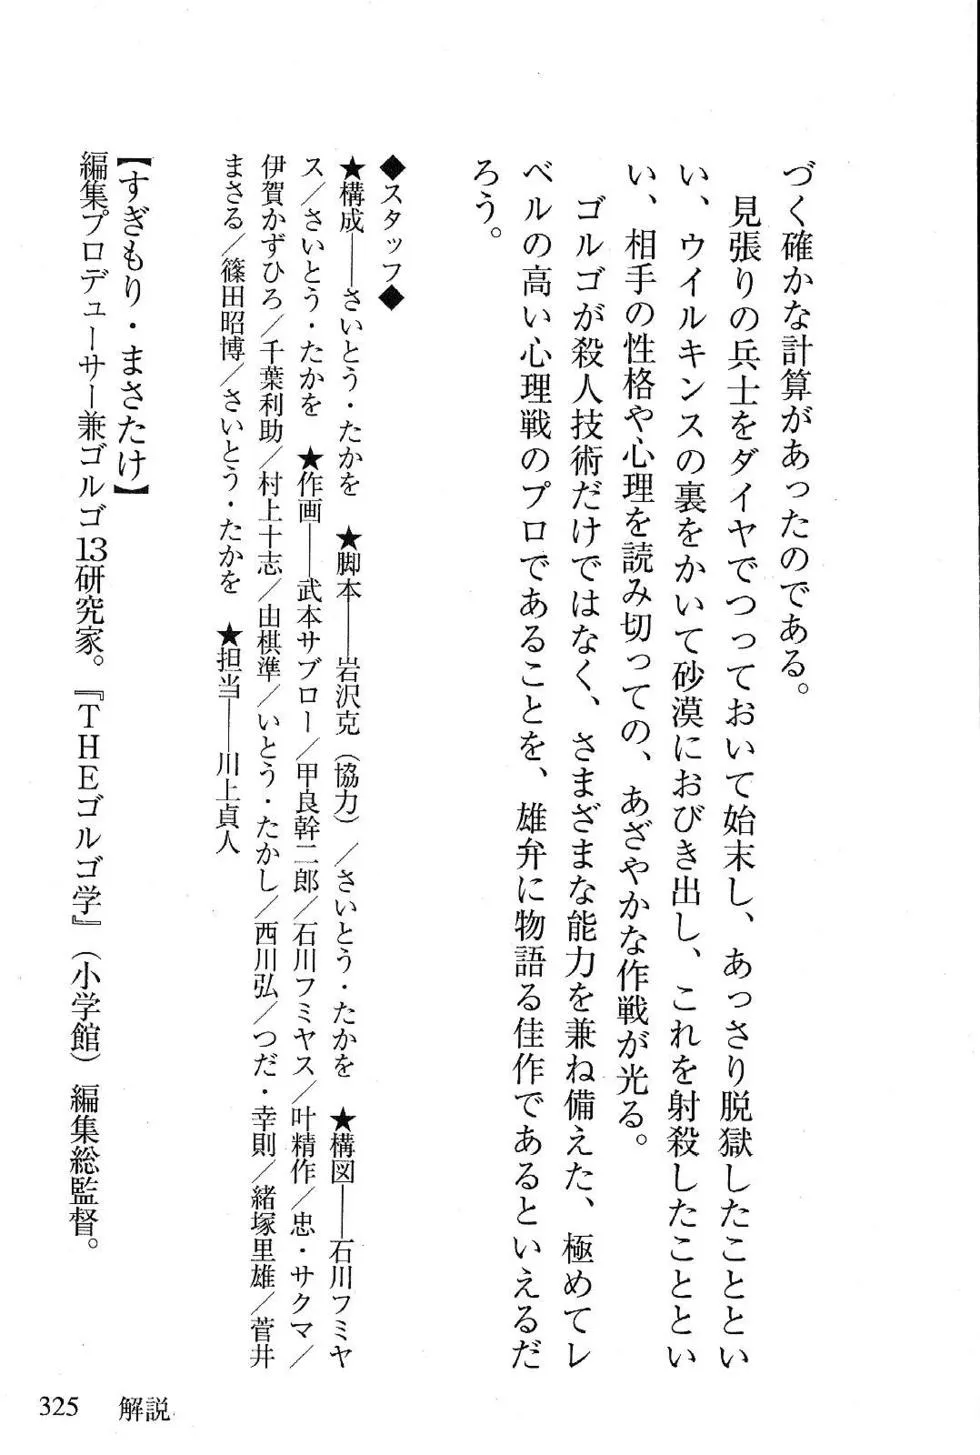 づく確かな計算があったのである。
　見張りの兵士をダイヤでつっておいて始末し、あっさり脱獄したことといい
い、ウイルキンスの裏をかいて砂漠におびき出し、これを射殺したことといい
い、相手の性格や心理を読み切っての、あざやかな作戦が光る。
　ゴルゴが殺人技術だけではなく、さまざまな能力を兼ね備えた、極めてレ
ベルの高い心理戦のプロであることを、雄弁に物語る佳作であるといえるだ
ろう。
◆スタッフ◆
★構成――さいとう・たかを　★脚本――岩沢克（協力）／さいとう・たかを　★構図――石川フミヤ
ス／さいとう・たかを　★作画――武本サブロー／甲良幹二郎／石川フミヤス／叶精作／忠・サクマ／
伊賀かずひろ／千葉利助／村上十志／由棋準／いとう・たかし／西川弘／つだ・幸則／緒塚里雄／菅井
まさる／篠田昭博／さいとう・たかを　★担当――川上貞人
【すぎもり・まさたけ】
編集プロデューサー兼ゴルゴ13研究家。『THEゴルゴ学』（小学館）編集総監督。
325　解説